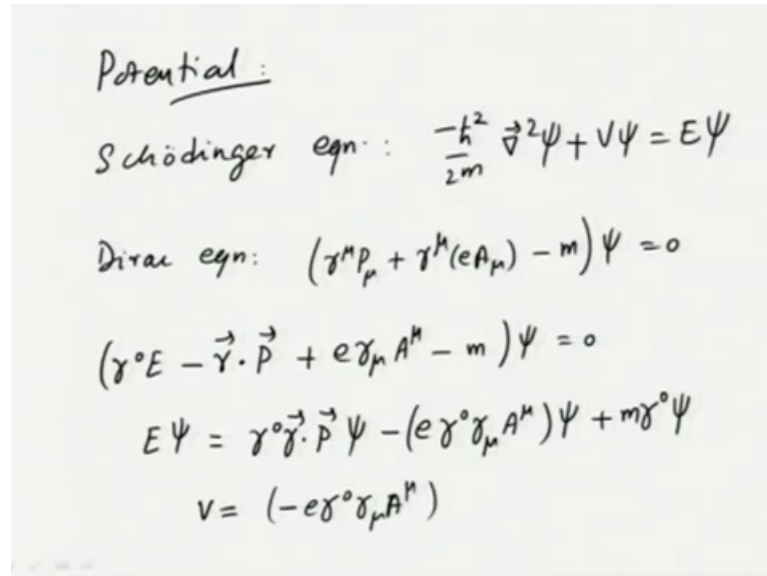 Potential :
Schödinger eqn. : -ħ²/2m ∇⃗²ψ + Vψ = Eψ
Dirac eqn: (γ^μ P_μ + γ^μ(eA_μ) - m)ψ = 0
(γ⁰E - γ⃗·P⃗ + eγ_μ A^μ - m)ψ = 0
Eψ = γ⁰γ⃗·P⃗ψ - (eγ⁰γ_μ A^μ)ψ + mγ⁰ψ
V = (-eγ⁰γ_μ A^μ)